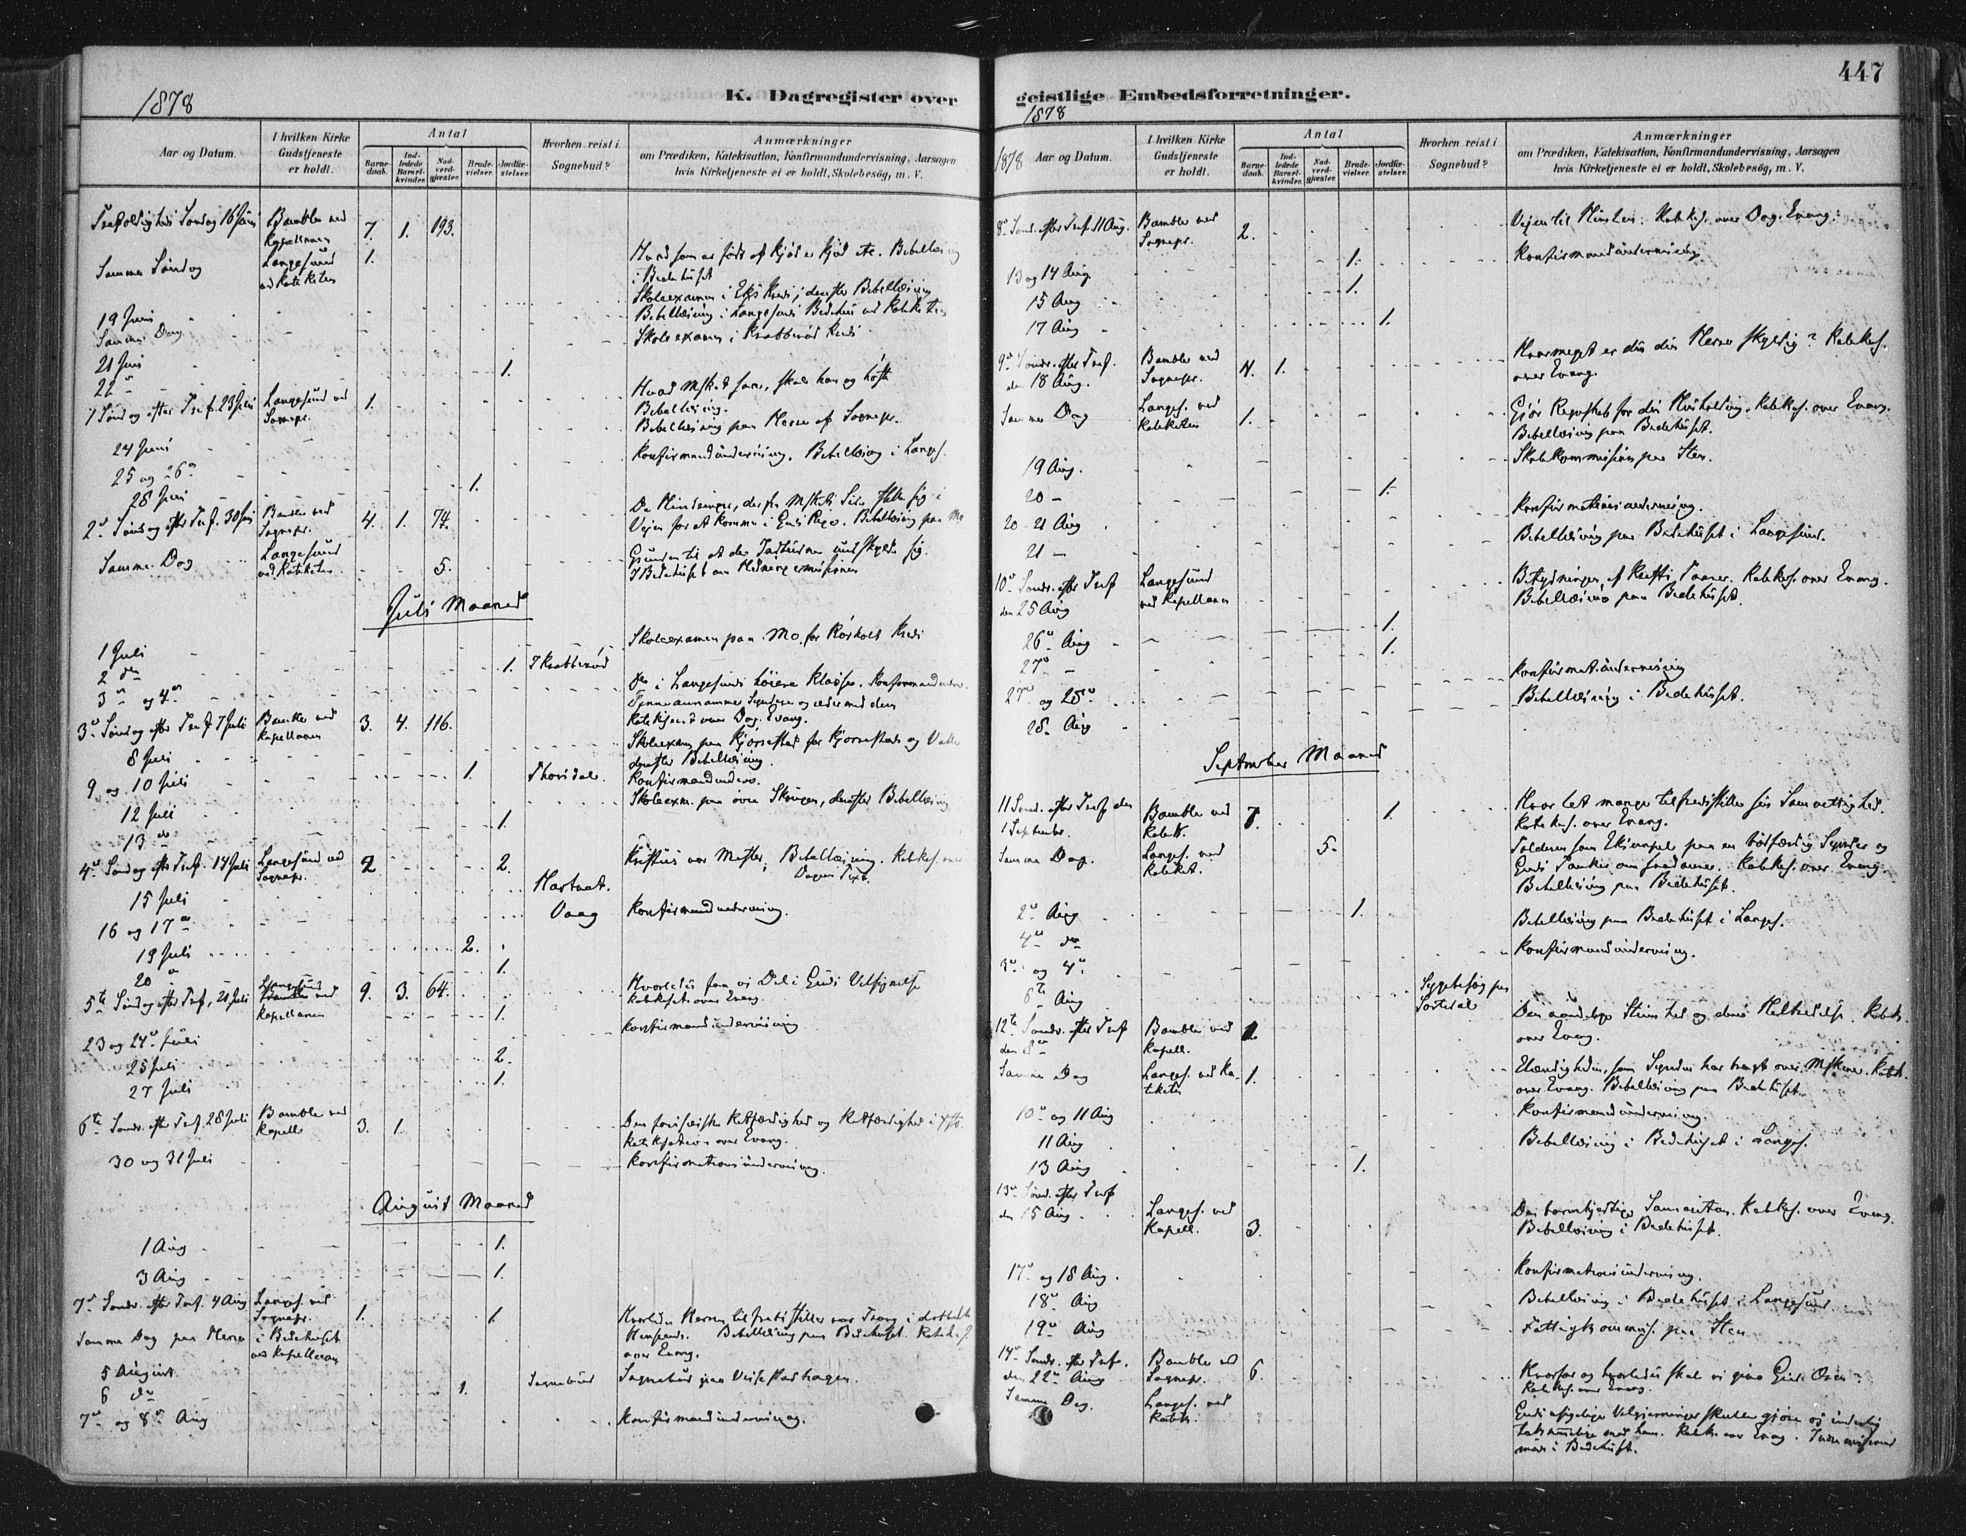 447
1878
K. Dagregister over
Aar og Datum.
I hvilken Kirke Gudstjeneste er holdt.
Antal
Barnedaab.
Indledede Barselkvinder.
Nadverdgjæster.
Brudevielser.
Jordfæstelser.
Hvorhen reist i Sognebud?
Anmærkninger
om Prædiken, Katekisation, Konfirmandundervisning, Aarsagen
hvis Kirketjeneste ei er holdt, Skolebesøg, m. V.
Trefoldigheds Søndag 16 Juni Bamble ved Kapellanen 7. 1. 193.
Samme Søndag Langesund ved Kateketen 1. Hvad som er født af Kjød er Kjød etc. Bibellæsning
i Bedehuset
19 Juni Skoleexamen i Kreds, derefter Bibellæsning
Samme Dag Bibellæsning i Langesunds Bedehus ved Kateketen
21 Juni Skoleexamen i Krabberød Kreds
22 1.
1 Søndag efter Tref. 23 Juni Langesund ved Sognepr. 1. Hvad Msket saar, skal han og høste
Bibellæsning.
24 Juni Bibellæsning paa Herre af Sognepr.
25 og 26 Konfirmandundervisning. Bibellæsning i Langes.
28 Juni 1.
2 Søndag efter Tref. 30 Juni Bamble ved Sognepr. 4. 1. 74. De Hindringer, der fra Msket Side stille sig i
Veien for at komme i Guds Rige. Bibellæsning paa
Samme Dag Langesund ved Kateketen 5. Grunden til at de Indbudne undskyldte sig.
Juli Maaned
1 Juli Skoleexamen paa Mo for Rørholt Kreds
2 1. I Krabberød
3 og 4 i Langesunds høiere Klasse. Konfirmandunderv.
3 Søndag efter Tref 7 Juli Bamble ved Kapellanen 3. 4. 116.
8 Juli Skoleexam paa Kjørsestad for Kjørsestad og
derefter Bibellæsning.
9 og 10 Juli 1. Thorsdal. Konfirmandunderv.
12 Juli Skoleexm. paa øvre Skougen, derefter Bibellæsning
13 1.
4 Søndag efter Tref. 14 Juli Langesund ved Sognepr. 2 2. Kristus vor Mester. Bibellæsning. Katekes. over
Dagens Text.
15 Juli Hartvat.
16 og 17 Vaag Konfirmandundervisning.
19 Juli 2.
20 1.
5te Søndag efter Tref. 21 Juli Kapellanen 9. 3. 64. Hvorledes faa vi Del i Guds Velsignelse
Katekisat. over Evang.
1.
23 og 24 Juli Konfirmandundervisning
25 Juli 2.
27 Juli 1.
6te Sønd. efter Tref. 28 Juli Bamble ved Kapell. 3. 1. Den farisæiske Retfærdighed og Retfærdighed i
Katekisation over Evang.
30 og 31 Juli Konfirmationsundervisning.
August Maaned
1 Aug 1.
3 Aug 1.
7 Sønd. efter Tref. 4 Aug Langes. ved Sognepr. 1. 1. Hvorledes Herren tilfredsstiller vor Trang i
Samme Dag paa Herre i Bedehuset ved Kapellanen Bibellæsning paa Bedehuset.
over Evang.
5 August
6 1. Sognebud Sognebud paa
7 og 8 Aug Konfirmandundervisning.
geistlige Embedsforretninger.
1878
1878
Aar og Datum.
I hvilken Kirke Gudstjeneste er holdt.
Antal
Barnedaab.
Indledede Barselkvinder.
Nadverdgjæster.
Brudevielser.
Jordfæstelser.
Hvorhen reist i Sognebud?
Anmærkninger
om Prædiken, Katekisation, Konfirmandundervisning, Aarsagen
hvis Kirketjeneste ei er holdt, Skolebesøg, m. V.
8 Sønd. efter Tref. 11 Aug. Bamble ved Sognepr. 2. Veien til Himlen. Katekes. over Dag. Evang.
13 og 14 Aug 1. Konfirmandundervisning
15 Aug 1.
17 Aug 1.
9 Sønd. efter Tref. den 18 Aug. Bamble ved Sognepr. 4. 1. Hvormeget er du din Herre skyldig? Katekes.
over Evang.
Samme Dag Langes. ved Kateketen 1. Gjør Regnskab for din Husholdning. Katekes. over Evang.
Bibellæsning paa Bedehuset.
19 Aug. Skolekommission paa Sten.
20 – 1.
20 – 21 Aug Konfirmationsundervisning.
21 – Bibellæsning paa Bedehuset i Langesund.
10 Sønd. efter Tref den 25 Aug Langesund ved Kapellanen Betydningen af Kristi Taarer. Katekes. over Evang.
Bibellæsning paa Bedehuset.
26 Aug 1.
27 – 1.
27 og 28 Konfirmat. undervisning
28 Aug Bibellæsning i Bedehuset.
September Maaned
11 Sønd. efter Tref den 1 September. Bamble ved Katek. 7. 1. Hvor let mange tilfredsstiller sin Samvittighed.
Katekes. over Evang.
Samme Dag. Langes. ved Kateket. 5. Tolderen som Exempel paa en bodfærdig Synder og
Katekes. over Evang.
Bibellæsning paa Bedehuset.
2 Aug 1.
4 Bibellæsning paa Bedehuset i Langes.
3 og 4 Konfirmandundervisning.
6te Aug Sygebesøg paa
12te Sønd. efter Tref den 8 Bamble ved Kapell. Den aandelige Stumhed og dens Helbredelse. Katek.
over Evang.
Samme Dag Langes. ved Kateketen 1. Elendigheden, som Synden har bragt over Mskene. Katek.
over Evang. Bibellæsning paa Bedehuset.
10 og 11 Aug Konfirmandundervisning.
11 Aug Bibellæsning i Bedehuset i Langes.
13 Aug 1.
13 Sønd. efter Tref den 15 Aug. Langes. ved Kapell. 3. Den barmhjertige Samaritan. Katekes. over Evang.
Bibellæsning i Bedehuset.
17 og 18 Aug. Konfirmationsundervisning.
18 Aug Bibellæsning i Bedehuset i Langesund
19 Aug Fattigkommis. paa Sten
14 Sønd. efter Tref. den 22 Aug Bamble ved Sognepr. 6. Hvorfor og hvorledes skal vi give Gud Æren?
Katekes. over Evang.
Samme Dag. Langes. ved Katek. Guds Velgjerninger skulle gjøre os inderlig
taknemmelige mod ham. Katek. over Evang.
møde i Bedehuset.